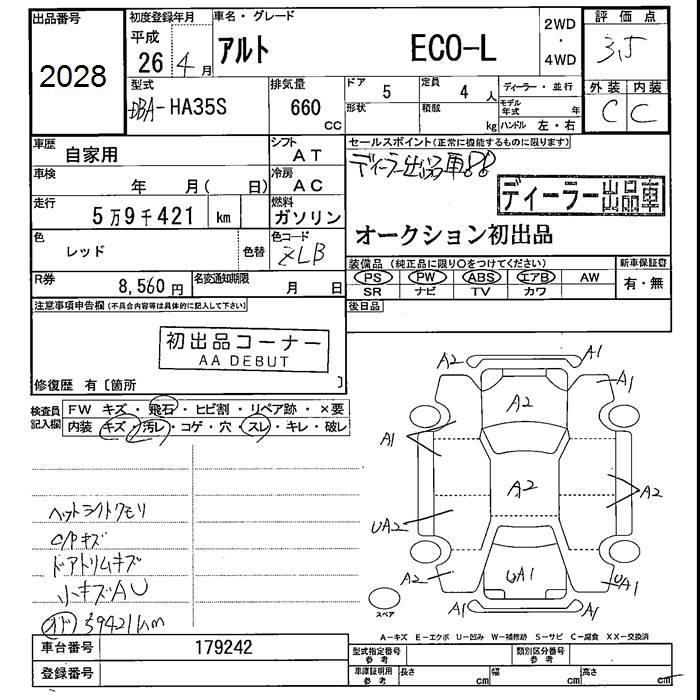 出品番号 初度登録年月 車名・グレード 2WD 評価点
2028 平成 26 4月 アルト ECO-L ・ 4WD 3.5
型式 排気量 ドア 5 定員 4 人 ディーラー・並行 外装 内装
DBA-HA35S 660 cc 形状 積載 kg モデル年式 年 ハンドル 左・右 C C
車歴 自家用 シフト AT セールスポイント(正常に機能するものに限ります)
車検 年 月( 日) 冷房 AC ディーラー出品車
走行 5万9千421 km 燃料 ガソリン ディーラー出品車
色 レッド 色替 色コード ZLB オークション初出品
装備品(純正品に限り○をつけてください) 新車保証書
R券 8,560円 名変通知期限 月 日 PS PW ABS エアB AW 有・無
SR ナビ TV カワ
注意事項申告欄(不具合内容等は具体的に記入して下さい) 後日品
初出品コーナー
AA DEBUT
修復歴 有〔箇所 〕
検査員記入欄 FW キズ・飛石・ヒビ割・リペア跡・×要
内装 キズ・汚レ・コゲ・穴・スレ・キレ・破レ
A2 A1
A1
A2
A1
A2
A2
UA2
A2 UA1 UA1
A1 A1
スペア
ヘットライトクモリ
C/Pキズ
ドアトリムキズ
小キズAU
オド 59421km
A-キズ E-エクボ U-凹み W-補修跡 S-サビ C-腐食 XX-交換済
車台番号 179242 型式指定番号 参考 類別区分番号 参考
登録番号 車庫証明用 参考 長さ cm 幅 cm 高さ cm